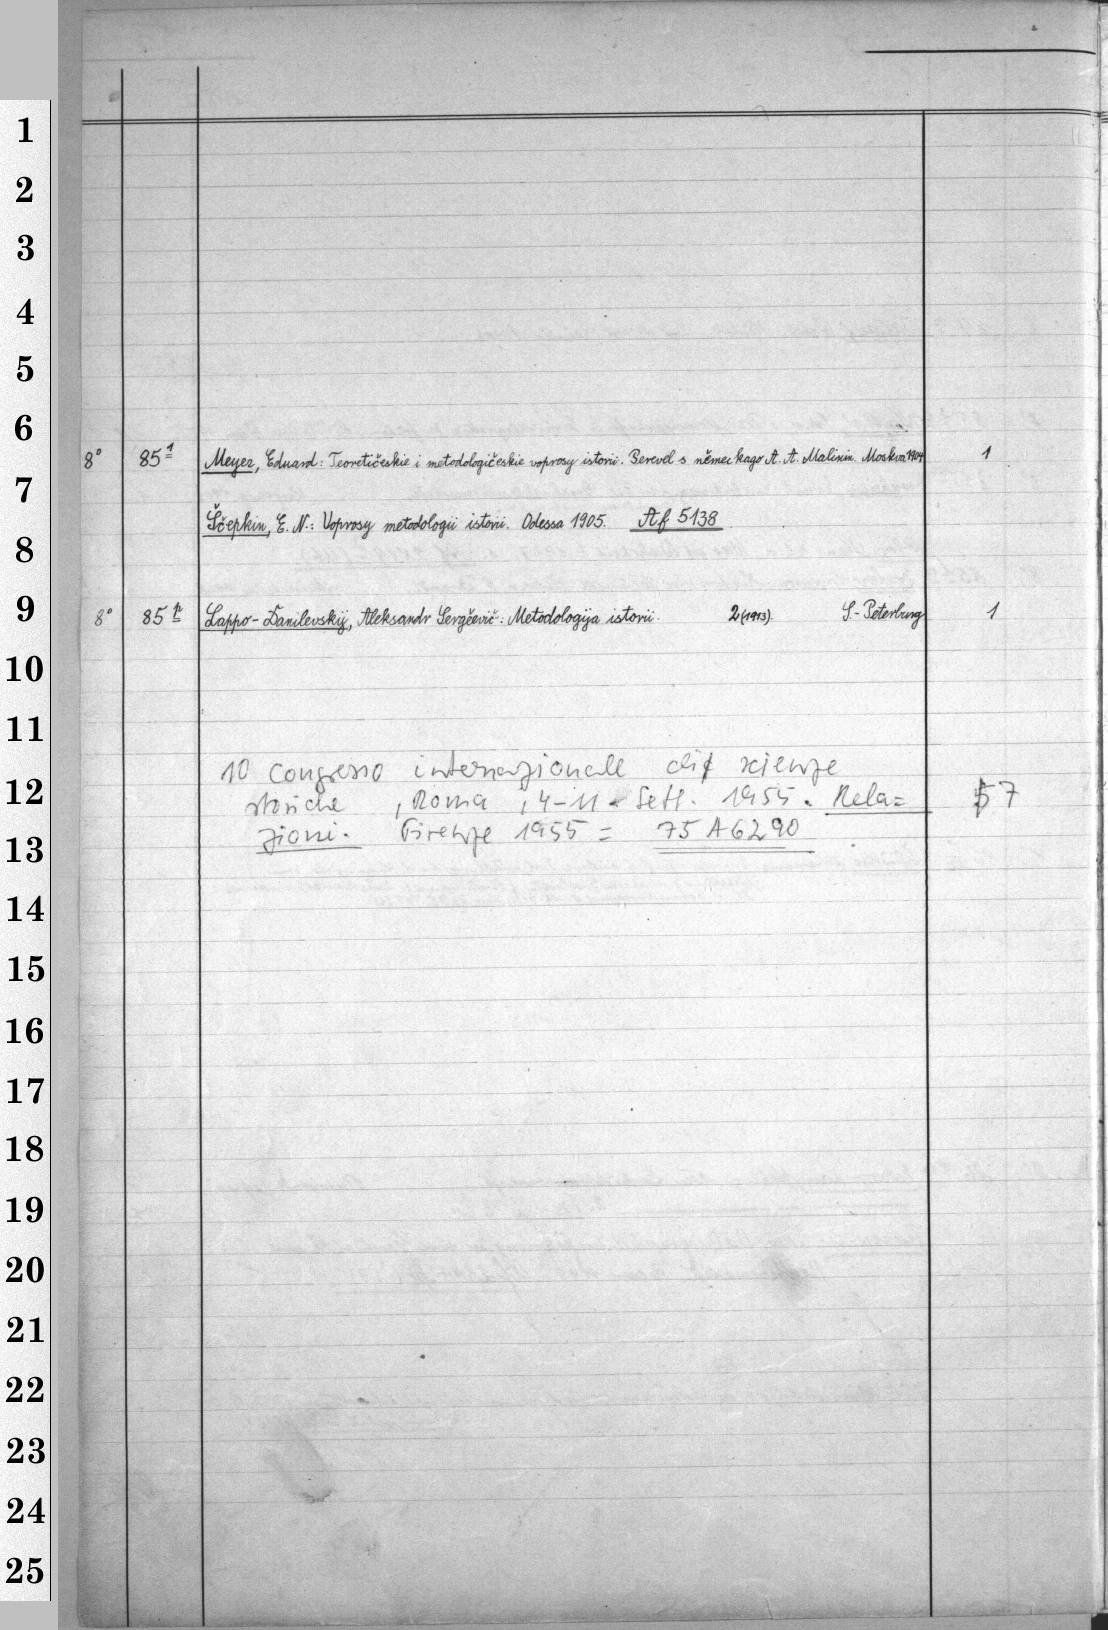 1
2
3
4
5
6
8° 85¹ Meyer, Eduard: Teoretičeskie i metodologičeskie voprosy istorii. Perevel s německago A. A. Malinin. Moskva 1904 1
7
Ščepkin, E. N.: Voprosy metodologii istorii. Odessa 1905. Af 5138
8
9
8° 85 Lappo-Danilevskij, Aleksandr Sergěevič: Metodologija istorii. 2(1913). S-Peterburg 1
10
11
10 Congresso internazionale di scienze
12
storiche, Roma, 4-11. Sett. 1955. Rela= 57
zioni. Firenze 1955 = 75 A 6290
13
14
15
16
17
18
19
20
21
22
23
24
25